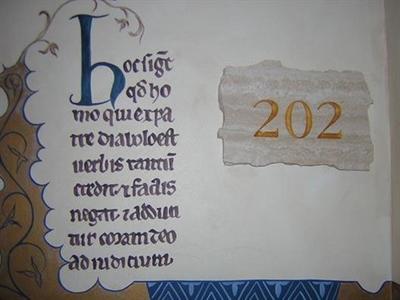 hoc
qđ ho
mo qui ex pa
tre diabolo est
uerbis tantū
credit ⁊ factis
negat ⁊ addun
tur coram deo
ad iudicium
202